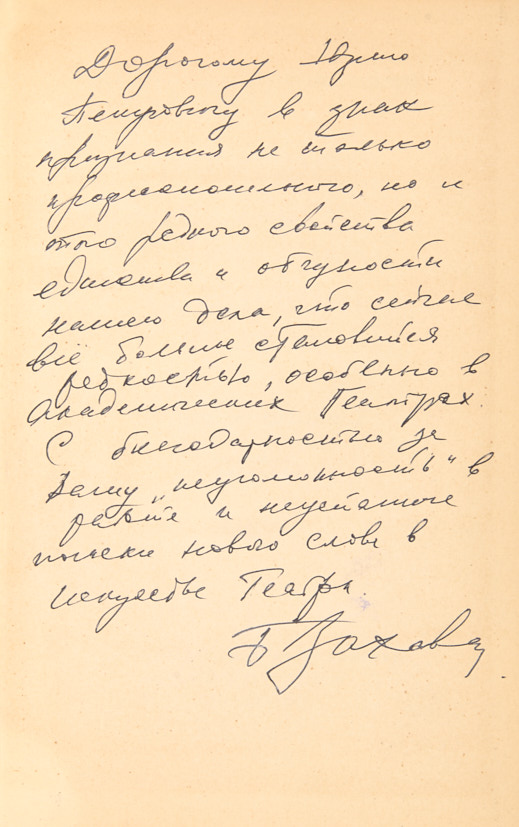 Дорогому Юрию
Петровичу в знак
признания не только
профессионального, но и
того редкого свойства
единства и общности
нашего дела, что сейчас
всё больше становится
редкостью, особенно в
Академических Театрах.
С благодарностью за
Вашу „неугомонность" в
работе и неустанные
поиски нового слова в
искусстве Театра.
Б Захава